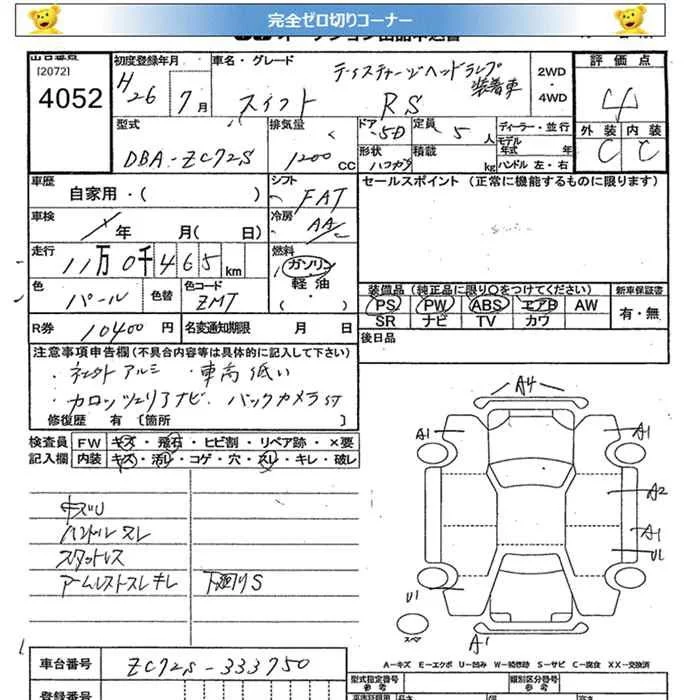 完全ゼロ切りコーナー
[2072]
4052
初度登録年月
H26 7月
車名・グレード
ディスチャージヘッドランプ
装着車
スイフト RS
2WD
・
4WD
評価点
4
外装 内装
C C
型式
DBA-ZC72S
排気量
1200 CC
ドア 5D
定員 5人
形状 ハコガタ
積載 kg
ディーラー・並行
モデル年式 年
ハンドル 左・右
車歴
自家用・( )
シフト
FAT
車検
年 月( 日)
冷房
AAC
走行
11万0千465km
燃料
ガソリン
軽油
( ・ )
色
パール
色替
色コード
ZMT
R券 10400円
名変通知期限 月 日
セールスポイント(正常に機能するものに限ります)
装備品(純正品に限り○をつけてください)
PS PW ABS エアB AW
SR ナビ TV カワ
新車保証書
有・無
後日品
注意事項申告欄(不具合内容等は具体的に記入して下さい)
・社外アルミ ・車高低い
・カロッツェリアナビ バックカメラ付
修復歴 有 [箇所 ]
検査員 FW キズ・飛石・ヒビ割・リペア跡・×要
記入欄 内装 キズ・汚レ・コゲ・穴・スレ・キレ・破レ
キズU
ハンドルスレ
スタッドレス
アームレストスレキレ
下廻りS
A4
A1
A1
A2
A1
U1
U1
スペア
A1
A-キズ E-エクボ U-凹み W-補修跡 S-サビ C-腐食 XX-交換済
車台番号 ZC72S-333750
登録番号
型式指定番号
参考
類別区分番号
参考
長さ
幅
高さ